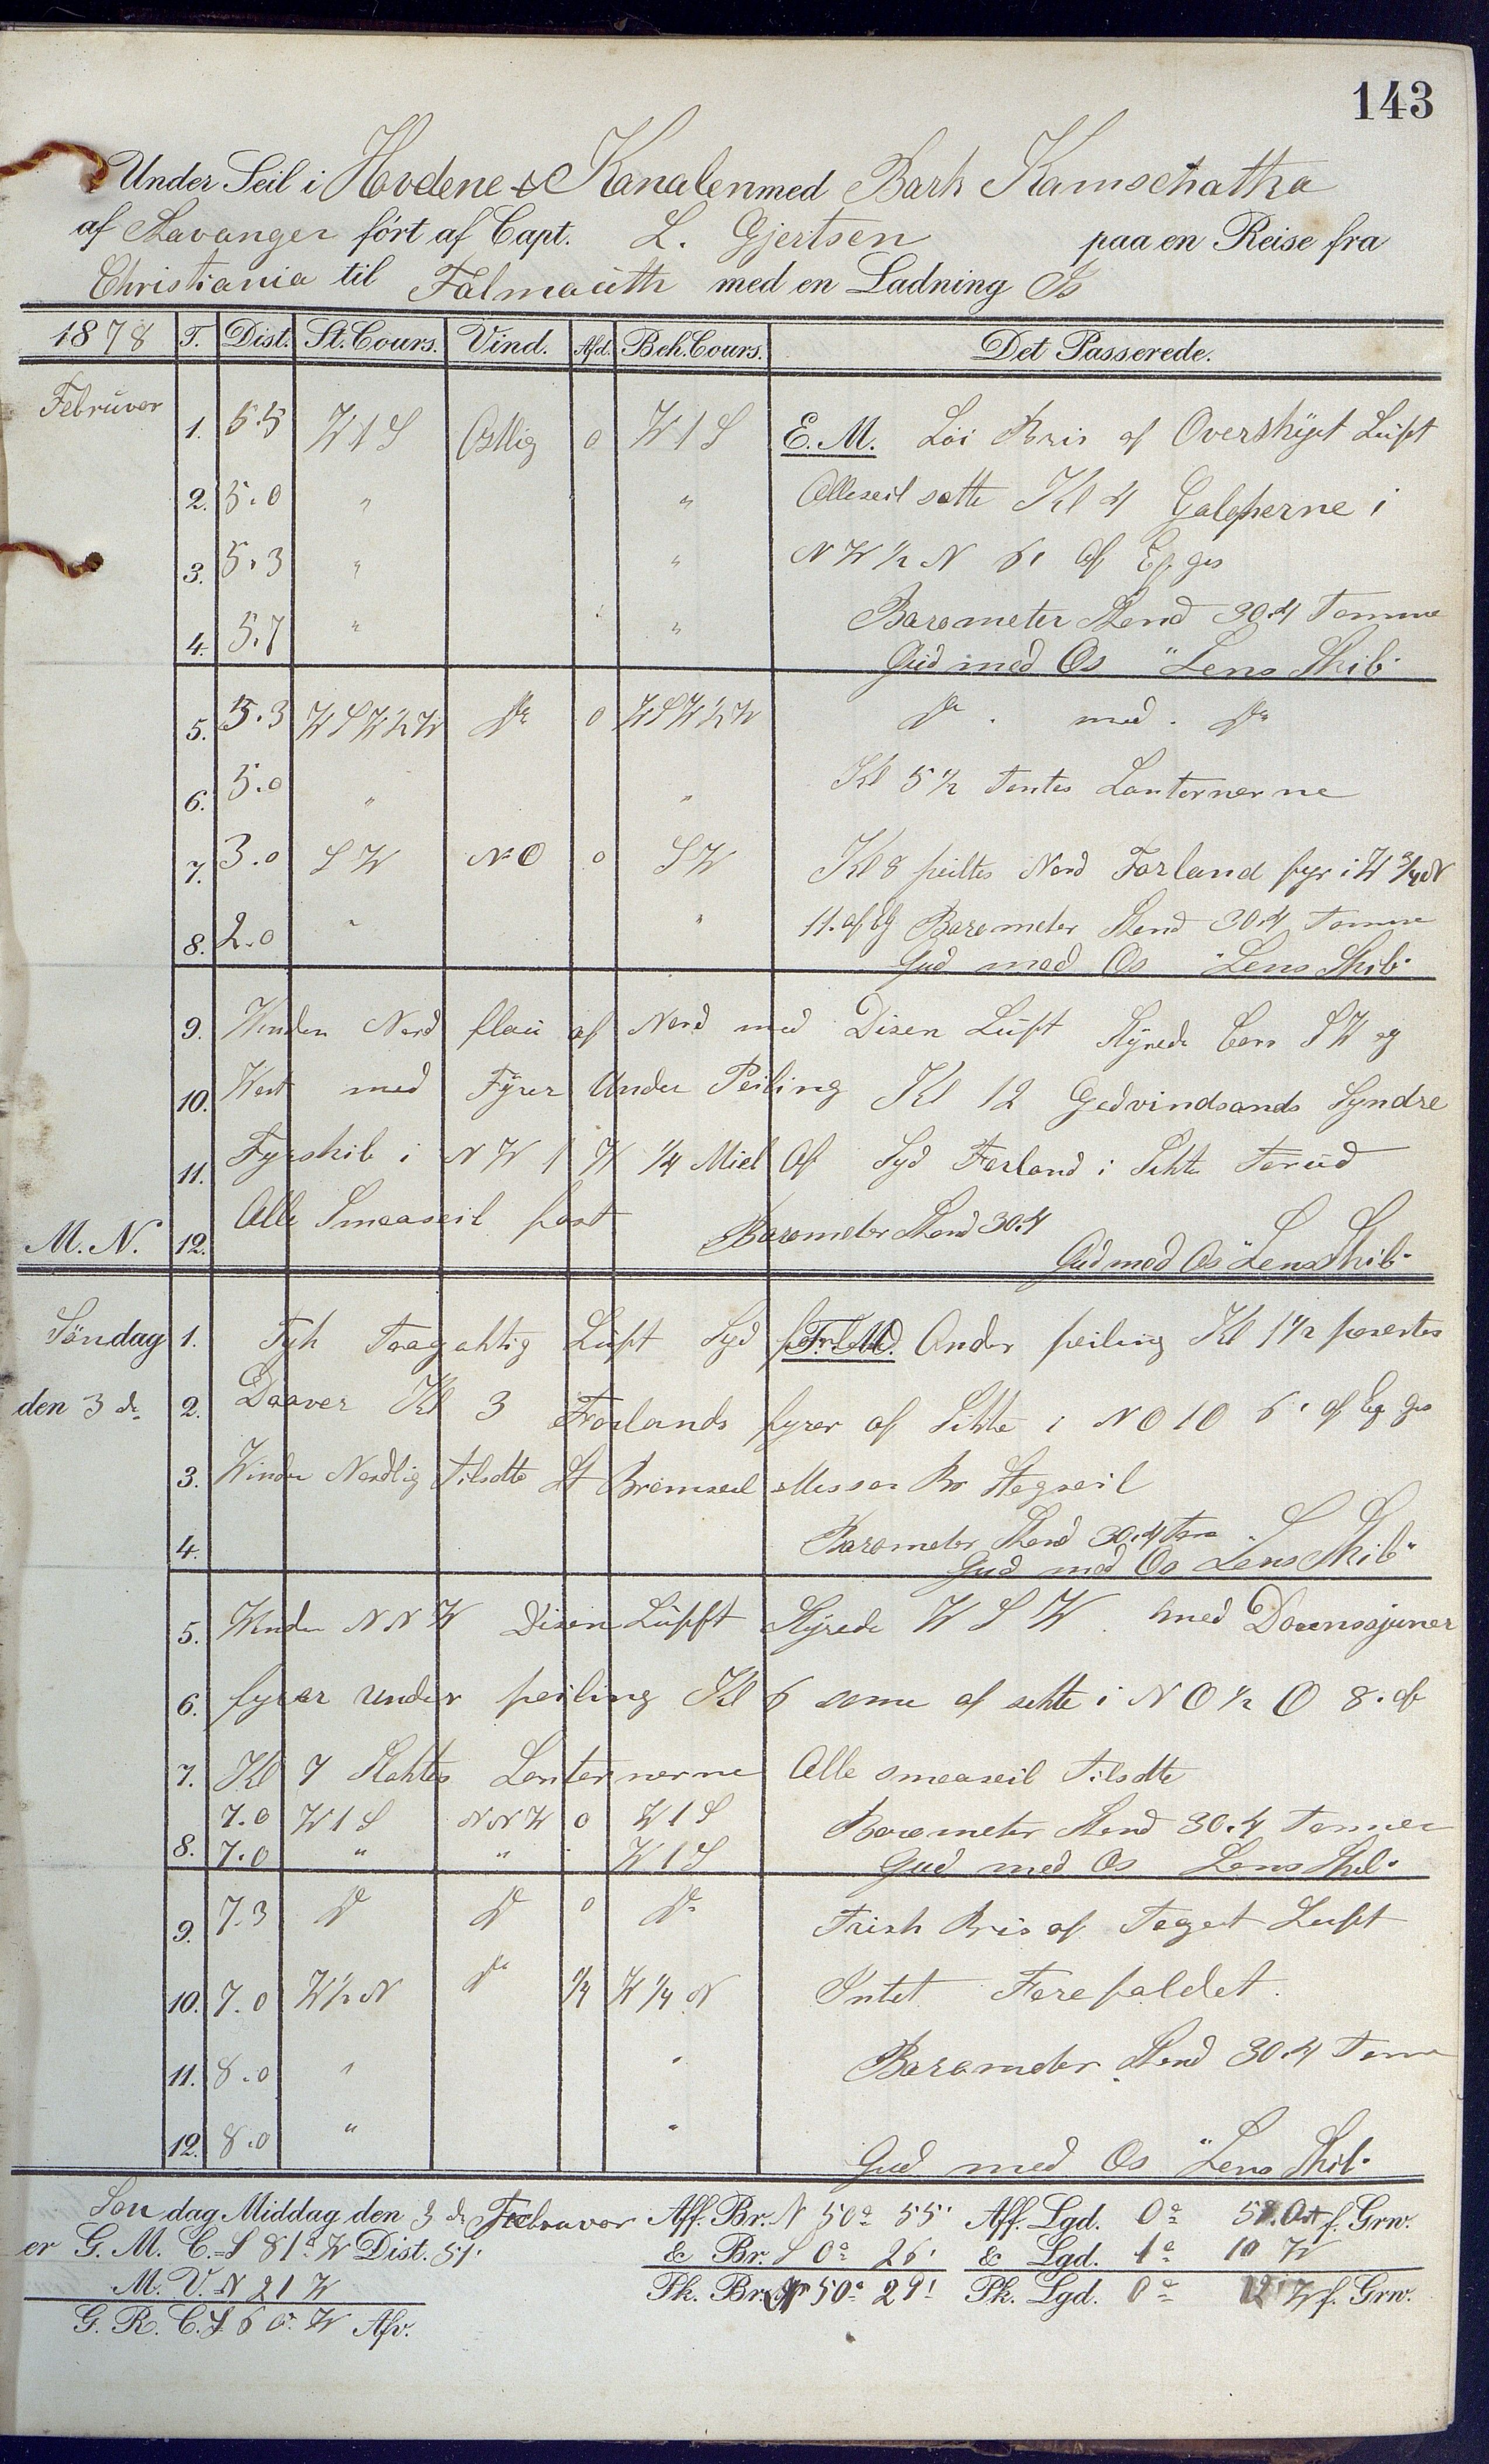 143
Under Seil i Hovdene & Kanalen med Bark Kamschatka
af Stavanger fórt af Capt. L. Gjertsen paa en Reise fra
Christiania til Falmouth med en Ladning Is
1878 T. Dist. St. Cours. Vind. Afd. Beh. Cours. Det Passerede.
Februar 1. 5.5 W 1 S Ostlig 0 W 1 S E. M. Löi Bris af Overskyet Luft
2. 5.0 " " Alleseil satte Kl 4 Galoperne i
3. 5.3 " " N W ½ N 6' af Eg. gs
4. 5.7 " " Barometer Stand 30.4 Tomme
Gud med Os "Lens Skib"
5. 5.3 W S W ½ W Do 0 W S W ½ W Do . med . Do
6. 5.0 " " Kl 5 ½ Tentes Lanternerne
7. 3.0 S W N O 0 S W Kl 8 peiltes Nord Forland fyr i W ¾ N
8. 2.0 " " 11. af Eg Barometer Stand 30.4 Tomme
Gud med Os "Lens Skib"
9. Vinden Nord flau af Nord med Disen Luft Styrede Cors S W og
10. West med Fyrer Under Peiling Kl 12 Gedvindsands Syndre
11. Fyrskib i N W 1 W ¼ Miel Af Syd Forland i Sikte Forud
M. N. 12. Alle Smaaseil fast Barometer Stand 30.4
Gud med Os "Lens Skib"
Söndag 1. Tyk Taagaktig Luft Syd F. M. Under peiling Kl 1½ paseertes
den 3 de 2. Daaver Kl 3 Forlands fyrer af Sikte i N O 1 O 6' af Eg gs
3. Vinden Nordlig Tilsatte St Bramseil Messan Br Stagseil
4. Barometer Stand 30.4 Tom
Gud med Os "Lens Skib"
5. Vinden N N W Disen Lufft Styrede W S W med
6. fyrer under peiling Kl 6 samme af sikte i N O ½ O 8. af
7. Kl 7 Sluktes Lanternerne Alle smaaseil Tilsatte
7.0 W 1 S N N W 0 W 1 S Barometer Stand 30.4 Tommer
8. 7.0 " " W 1 S Gud med Os Lens Skib"
9. 7.3 Do Do 0 Do Frisk Bris af Taaget Luft
10. 7.0 W ½ N Do ¼ W ¼ N Intet Forefaldet.
11. 8.0 " " Barometer Stand 30.4 Tomme
12. 8.0 " " Gud med Os "Lens Skib"
Son dag Middag den 3 de Februar Aff. Br. N 50° 55' Aff. Lgd. 0° 58 Ost f. Grw.
er G. M. C. S 81° W Dist. 51' & Br. S 0° 26' & Lgd. 1° 10 W
M. V. N 21 W Pk. Br. N 50° 29' Pk. Lgd. 0° 12' W f. Grw.
G. R. C. S 60° W Afv.